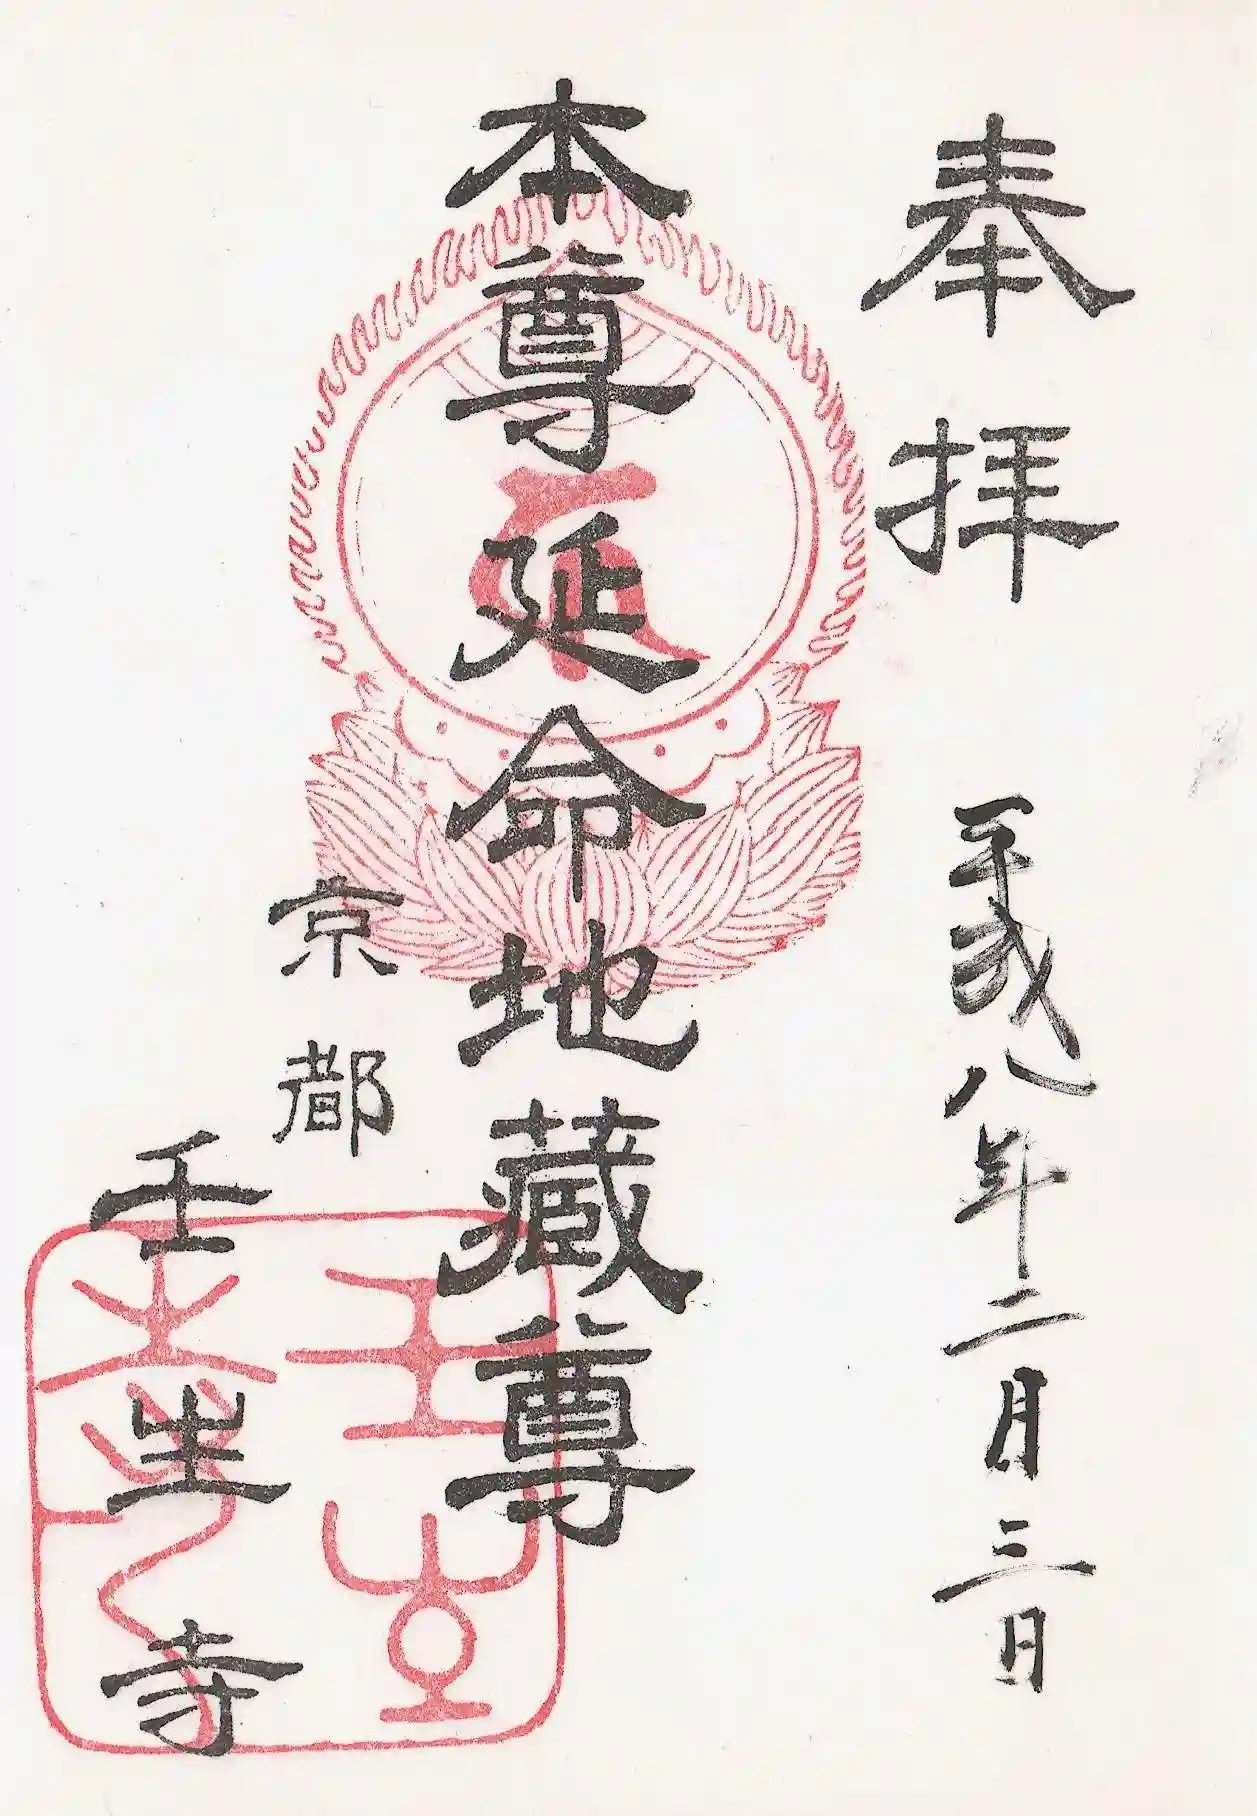 奉拝
平成八年二月三日
本尊延命地蔵尊
京都
壬生寺